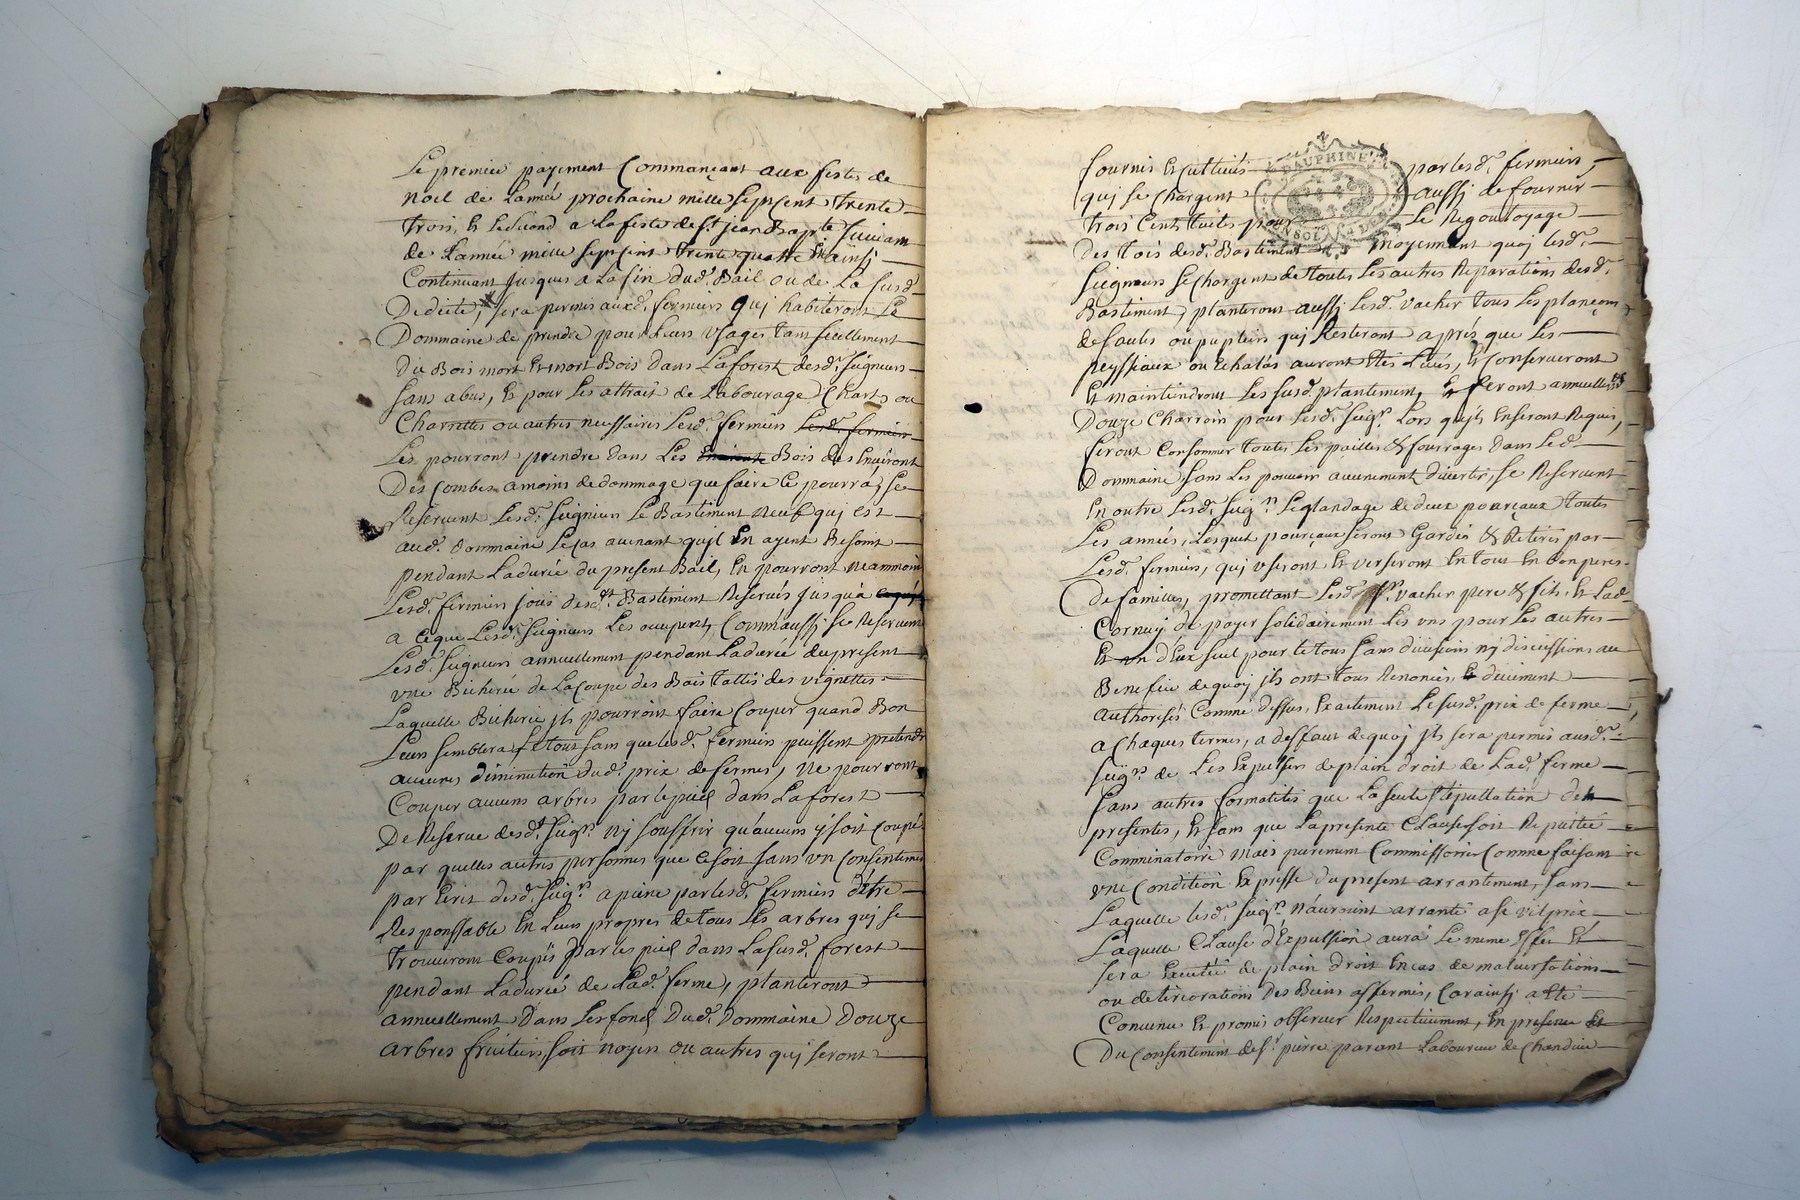 Le premier payement Commançant aux festes de
noel de Lanneé prochaine mille septcent trente
trois, et Lesecond a Lafeste de st jean Bapte suivam
de Lanneé mille septcent trente quatre Et ainsi
Continuant jusques a La fin dud. Bail ou de La susd.
Dedeite, sera permis auxd. fermiers quj habiteront Le
Dommaine de prendre pour Leurs Usages tant seullement
Du Bois mort et mort Bois dans Laforest desd. seigneurs
sans abus, et pour Les attrait de Labourage Charts ou
Charrettes ou autres necessaires Lesd. fermiers Lesd. fermiers
Les pourront prendre dans Les Bois des Environt
Des Combes amoins dedommage que faire Ce pourra, se
Reservent Lesd. seigneurs Le Bastiment neuf quj est
aud. dommaine Lecas avenant qujl En ayent Besoint
pendant Laduréé du present Bail, En pourront neammoin
Lesd. fermiers jouir desdt. Bastiment Reservés jusqua
a ceque Lesd. seigneurs Les occupent, Comm'aussj se Reservent
Lesd. seigneurs annuellement pendant Laduréé dupresent
vne Bicheréé de LaCoupe des Bois tallis des vignettes
Laquelle Bicheréé jls pourront faire Couper quand Bon
Leurs semblera Le tout sans que lesd. fermiers puissent pretendr
aucunes diminution dud. prix defermes, ne pourront
Couper aucuns arbres par lepied dans Laforest
De Reserve desdt. seigrs. nj souffrir qu'aucuns y soit Coupé
par quelles autres personnes que cesoit sans vn Consentemen
par Ecrit desd. seigrs. apeine par lesd. fermiers d'etre
Responssable En Leurs propres de tous Les arbres quj se
trouveront Coupés par les pied dans La susd. forest
pendant Laduréé de Lad. ferme, planteront
annuellement dans Les fond Dud. Dommaine Douze
arbres fruitiers, soit noyers ou autres quj seront
fournis et cultivés par lesd. fermiers,
quj se Chargent aussj defournir
trois Cents tuiles pour Le Regoutoyage
Des tois desd. Bastiment moyennant quoj lesd.
seigneurs seChargent de toutes Les autres Reparations desd.
Bastiment, planteront aussj Lesd. vacher tous Les plançons
desaules ou pupliers quj Resteront aprés que Les
peyssiaux ou Echalas auront Etés Levés, et Conserveront
et maintiendront Les susd. plantement, Et feront annuellemt
Douze Charroin pour Lesd. seigrs. Lors qujls En seront Requis,
feront Consommer toutes Les pailles & fourrages dans Led.
Dommaine sans Les pouvoir aucunement divertir, se Reservent
En outre Lesd. seigrs. Leglandage de deux pourçeaux toutes
Les annéés, Lesquels pourçeaux seront Gardés & Retirés par
Lesd. fermiers, quj vseront Et verseront En tout En bon peres
Defamilles, promettant Lesd. vacher pere & fils, Et Lad.
Cornuj de payer solidairement Les vns pour Les autres
Et vn d'Eux seul pour le tous sans divisions nj discutions au
Benefice dequoj jls ont tous Renoncés, & deuement
authorisés Comme dessus, Exactement Lesusd. prix de ferme
a Chaques termes, a deffaut dequoj jls sera permis ausd.
seigrs. de Les Expulser deplain droit de Lad. ferme
sans autres formalités que La seule stipullation des
presentes, Et sans que Lapresente Clause soit Reputée
Comminatoire mais purement Commissoire Comme faisant
vne Condition Expresse du present arrantement, sans
Laquelle lesd. seigrs. n'auroint arranté a si vil prix
Laquelle Clause d'Expulsion aura Le meme Effet Et
sera Executéé de plain droit En cas de malversations
ou deteriorations des Biens affermés, Car ainsj a Eté
Convenu Et promis observer Respectivement, En presence Et
Du Consentement de sr. pierre parent Laboureur de Chandieu
DAUPHINE